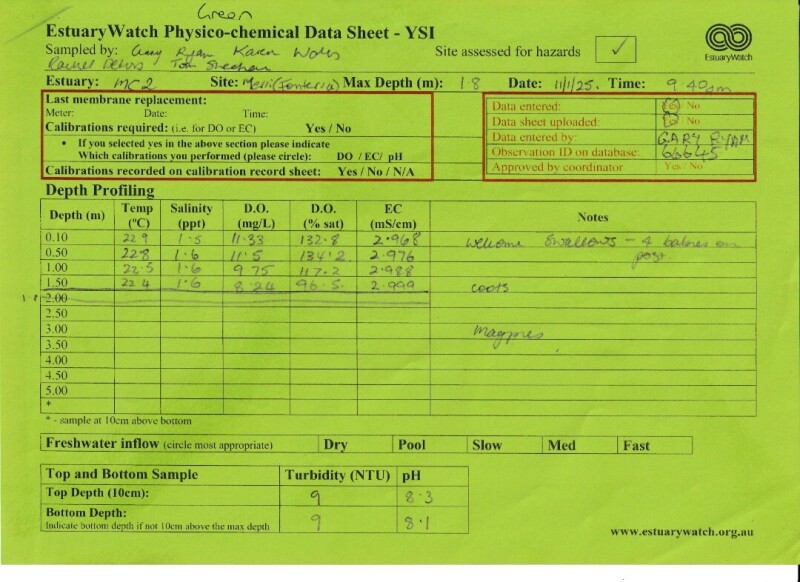 Green
EstuaryWatch Physico-chemical Data Sheet - YSI
Sampled by: Gary Ryan Karen Wolis
Site assessed for hazards ✓
EstuaryWatch
Rachel Tom Sheehan
Estuary: MC2 Site: Merri (Fonterra) Max Depth (m): 1 8 Date: 11/1/25. Time: 9 40am
Last membrane replacement:
Meter: Date: Time:
Calibrations required: (i.e. for DO or EC) Yes / No
• If you selected yes in the above section please indicate
Which calibrations you performed (please circle): DO / EC/ pH
Calibrations recorded on calibration record sheet: Yes / No / N/A
Data entered: Yes No
Data sheet uploaded: No
Data entered by: GARY RYAN
Observation ID on database: 66645
Approved by coordinator Yes / No
Depth Profiling
Depth (m) Temp (ºC) Salinity (ppt) D.O. (mg/L) D.O. (% sat) EC (mS/cm) Notes
0.10 22 9 1.5 11.33 132.8 2.968 Welcome Swallows - 4 babies on
0.50 228 1.6 11.5 134.2 2.976 post.
1.00 22.5 1.6 9 75 117.2 2.988
1.50 22 4 1.6 8.24 96.5 2.999 coots
1.8 2.00
2.50
3.00 Magpies
3.50
4.00
4.50
5.00
*
* - sample at 10cm above bottom
Freshwater inflow (circle most appropriate) Dry Pool Slow Med Fast
Top and Bottom Sample Turbidity (NTU) pH
Top Depth (10cm): 9 8.3
Bottom Depth: 9 8.1
Indicate bottom depth if not 10cm above the max depth
www.estuarywatch.org.au